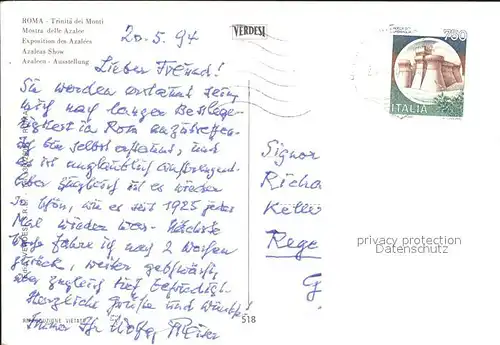 ROMA - Trinità dei Monti
Mostra delle Azalee
Exposition des Azalées
Azaleas Show
Azaleen - Ausstellung
VERDESI
750
ITALIA
20.5.94
Lieber Freund!
Sie werden erstaunt sein,
mich nach langer
in Rom anzutreffen.
Ich bin selbst erstaunt, und
es ist unglaublich anstrengend.
Aber zugleich ist es wieder
so schön, wie es seit 1925 jedes
Mal wieder war. Nächste
Woche fahre ich nach 2 Wochen
zurück, weiter geschwächt,
aber zugleich tief befriedigt.
Herzliche Grüße und Wünsche!
Immer Ihr Wolfg.
Signor
Richa
Kelle
Rege
G
privacy protection
Datenschutz
RIPRODUZIONE VIETATA
518